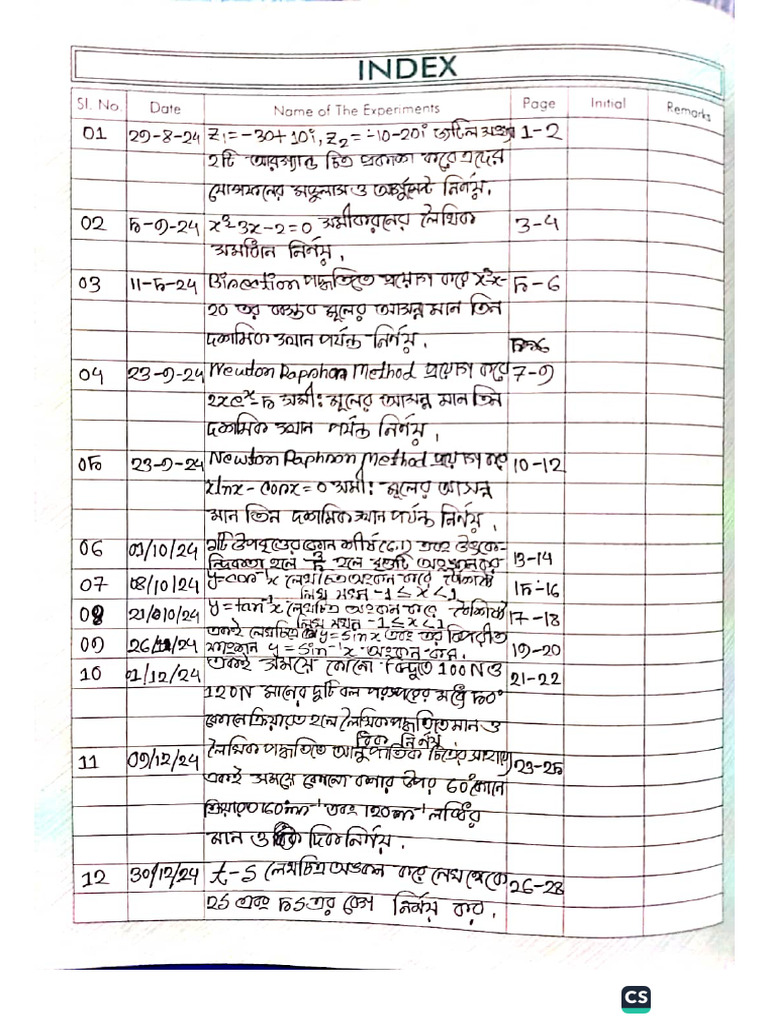 INDEX
Sl. No. Date Name of The Experiments Page Initial Remarks
01 29-8-24 Z₁=-30+10i, Z₂=-10-20i জটিল সংখ্যা 1-2
২টি আরগ্যান্ড চিত্র প্রকাশ করে এদের
যোগফলের মডুলাস ও আর্গুমেন্ট নির্ণয়.
02 -24 x²-3x-2=0 সমীকরনের লৈখিক 3-4
সমাধান নির্ণয়.
03 -24 Bisection পদ্ধতিতে প্রয়োগ করে
20 এর বাস্তব মূলের আসন্ন মান তিন
দশমিক স্থান পর্যন্ত নির্ণয়.
04 23-9-24 Newton Rapshon Method প্রয়োগ করে 7-9
সমী: মূলের আসন্ন মান তিন
দশমিক স্থান পর্যন্ত নির্ণয়.
23-9-24 Newton Raphson Method প্রয়োগ করে 10-12
xlnx-cosx=0 সমী: মূলের আসন্ন
মান তিন দশমিক স্থান পর্যন্ত নির্ণয়.
06 /10/24 13-14
হলে
07 08/10/24 y=cos⁻¹x লেখচিত্র অংকন কর
যখন -1≤x≤1
08 21/10/24 y=tan⁻¹x লেখচিত্র অংকন কর 17-18
যখন -1≤x≤1
09 একই লেখচিত্রে y=sinx এবং এর বিপরীত 19-20
ফাংশন y=sin⁻¹x অংকন কর.
10 01/12/24 একই সময়ে কোনো বিন্দুতে 100N ও 21-22
120N মানের দুটি বল পরস্পরের মধ্যে
কোণে ক্রিয়ারত হলে লৈখিক পদ্ধতিতে মান ও
দিক নির্ণয়.
11 09/12/24 লৈখিক পদ্ধতিতে আনুপাতিক চিত্রের সাহায্যে
একই সময়ে কোনো কণার উপর 60° কোণে
ক্রিয়ারত 60ms⁻¹ এবং 120ms⁻¹ লব্ধির
মান ও দিক নির্ণয়.
12 30/12/24 t-s লেখচিত্র অঙ্কন করে লেখ থেকে 26-28
2s এবং এর বেগ নির্ণয় কর.
CS